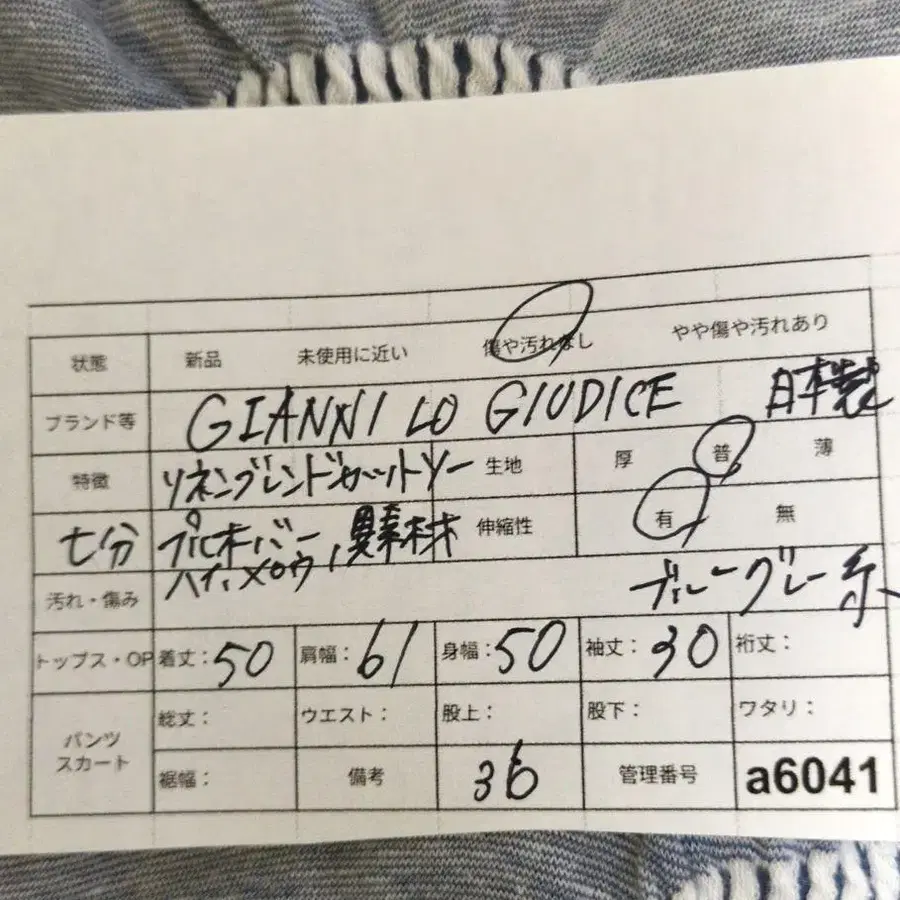 状態 新品 未使用に近い 傷や汚れなし やや傷や汚れあり
ブランド等 GIANNI LO GIUDICE 日本製
特徴 リネンブレンドカットソー 生地 厚 普 薄
七分 プルオーバー 異素材 伸縮性 有 無
汚れ・傷み ブルーグレー系
トップス・OP 着丈：50 肩幅：61 身幅：50 袖丈：30 裄丈：
パンツ スカート 総丈： ウエスト： 股上： 股下： ワタリ：
裾幅： 備考 36 管理番号 a6041